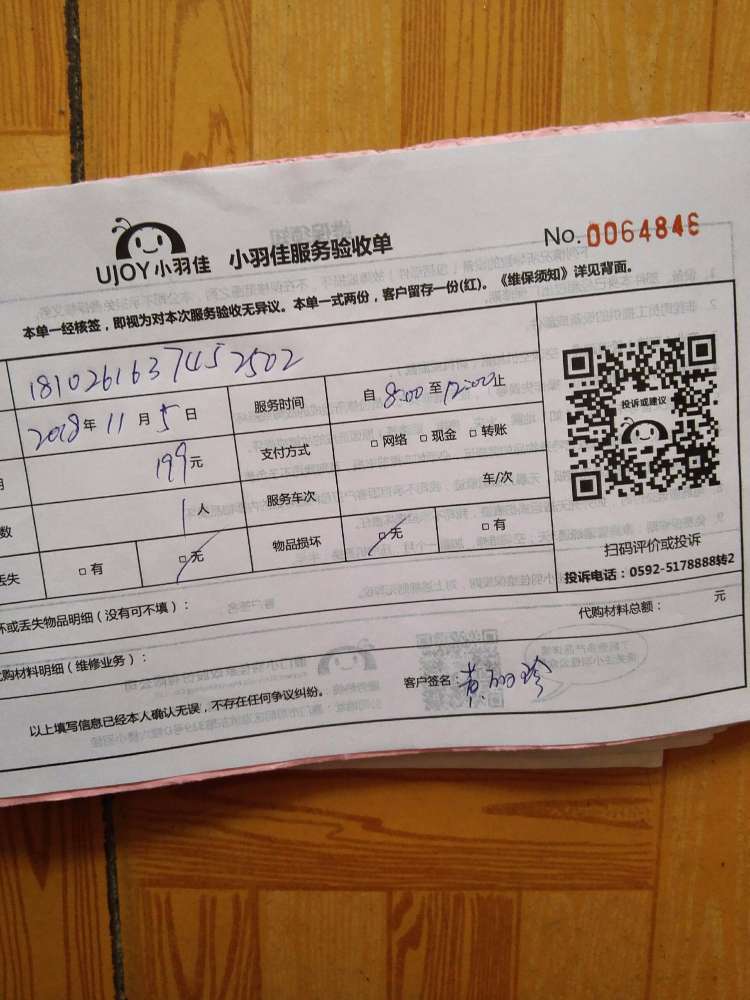 UJOY小羽佳 小羽佳服务验收单
No. 0064846
本单一经核签，即视为对本次服务验收无异议。本单一式两份，客户留存一份(红)。《维保须知》详见背面。
181026163745 2502
2018年 11 月 5 日 服务时间 自 8:00 至 12:00 止
199元 支付方式 □ 网络 □ 现金 □ 转账
数 1人 服务车次 车/次
丢失 □ 有 □ 无 物品损坏 □ 无 □ 有
投诉或建议
扫码评价或投诉
投诉电话：0592-5178888转2
坏或丢失物品明细（没有可不填）：
代购材料总额： 元
代购材料明细（维修业务）：
客户签名：
以上填写信息已经本人确认无误，不存在任何争议纠纷。